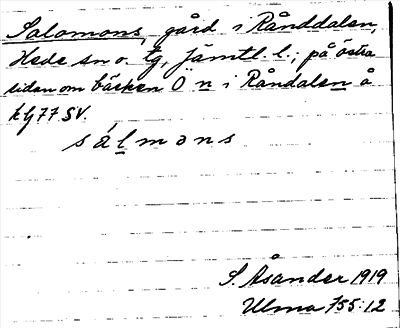 Salomons, gård i Rånddalen,
Hede sn o. tg, Jämtl. l.; på östra
sidan om bäcken Ön i Råndalen å
kbl 77 SV.
sálmɘns
S. Åsander 1919
Ulma 755:12